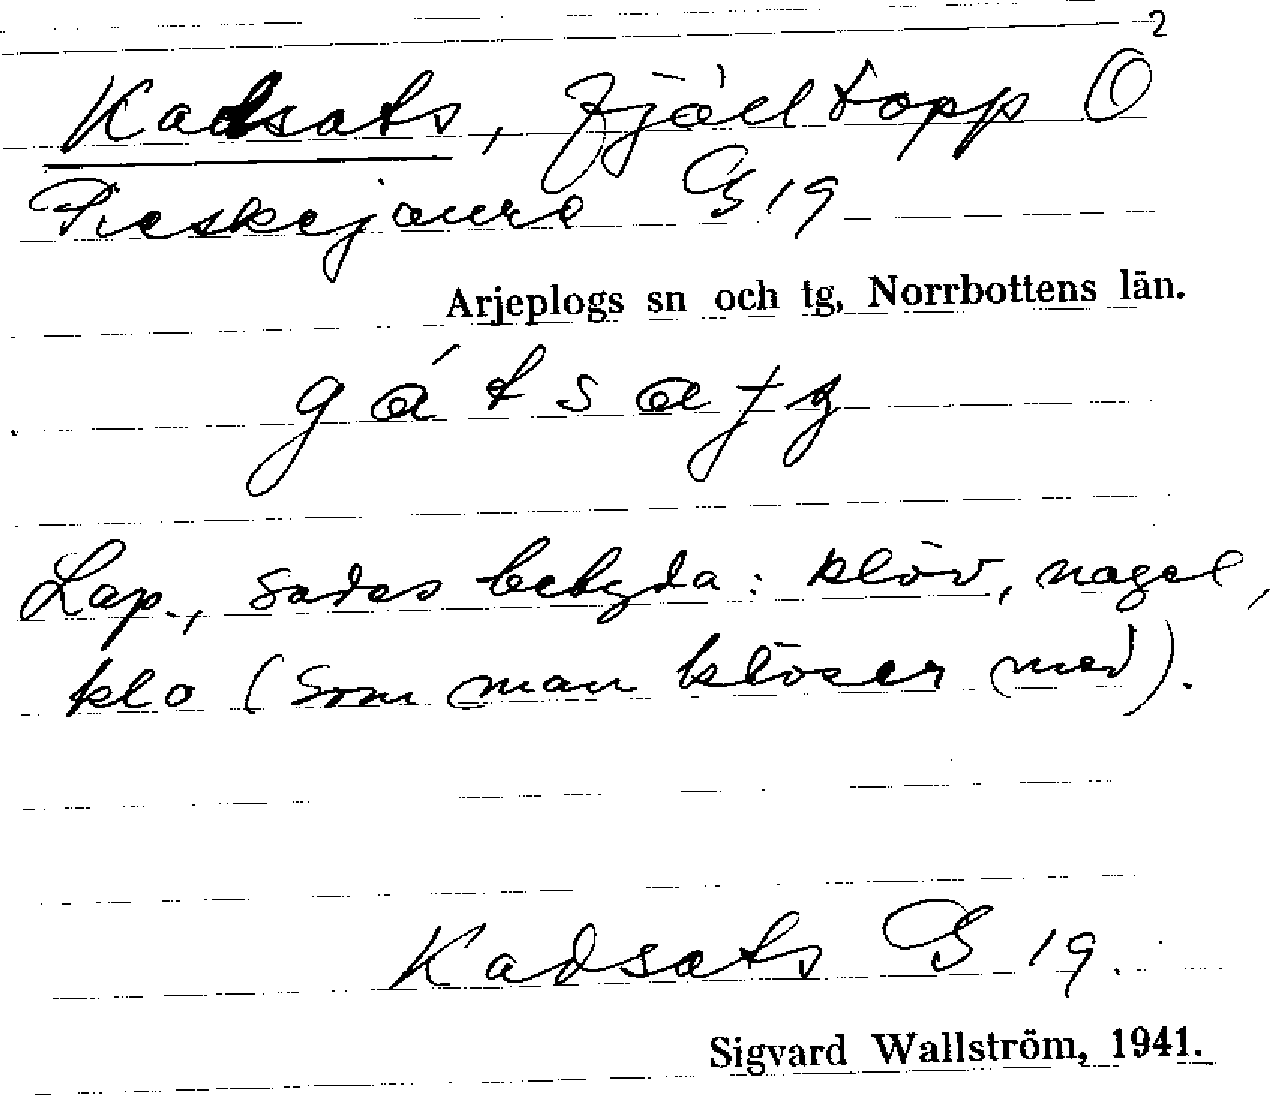 2
Kadsats, fjälltopp O
Pieskejaure G 19
Arjeplogs sn och tg, Norrbottens län.
Lap., sades betyda: klöv, nagel,
klo (som man klöser med).
Kadsats G 19.
Sigvard Wallström, 1941.